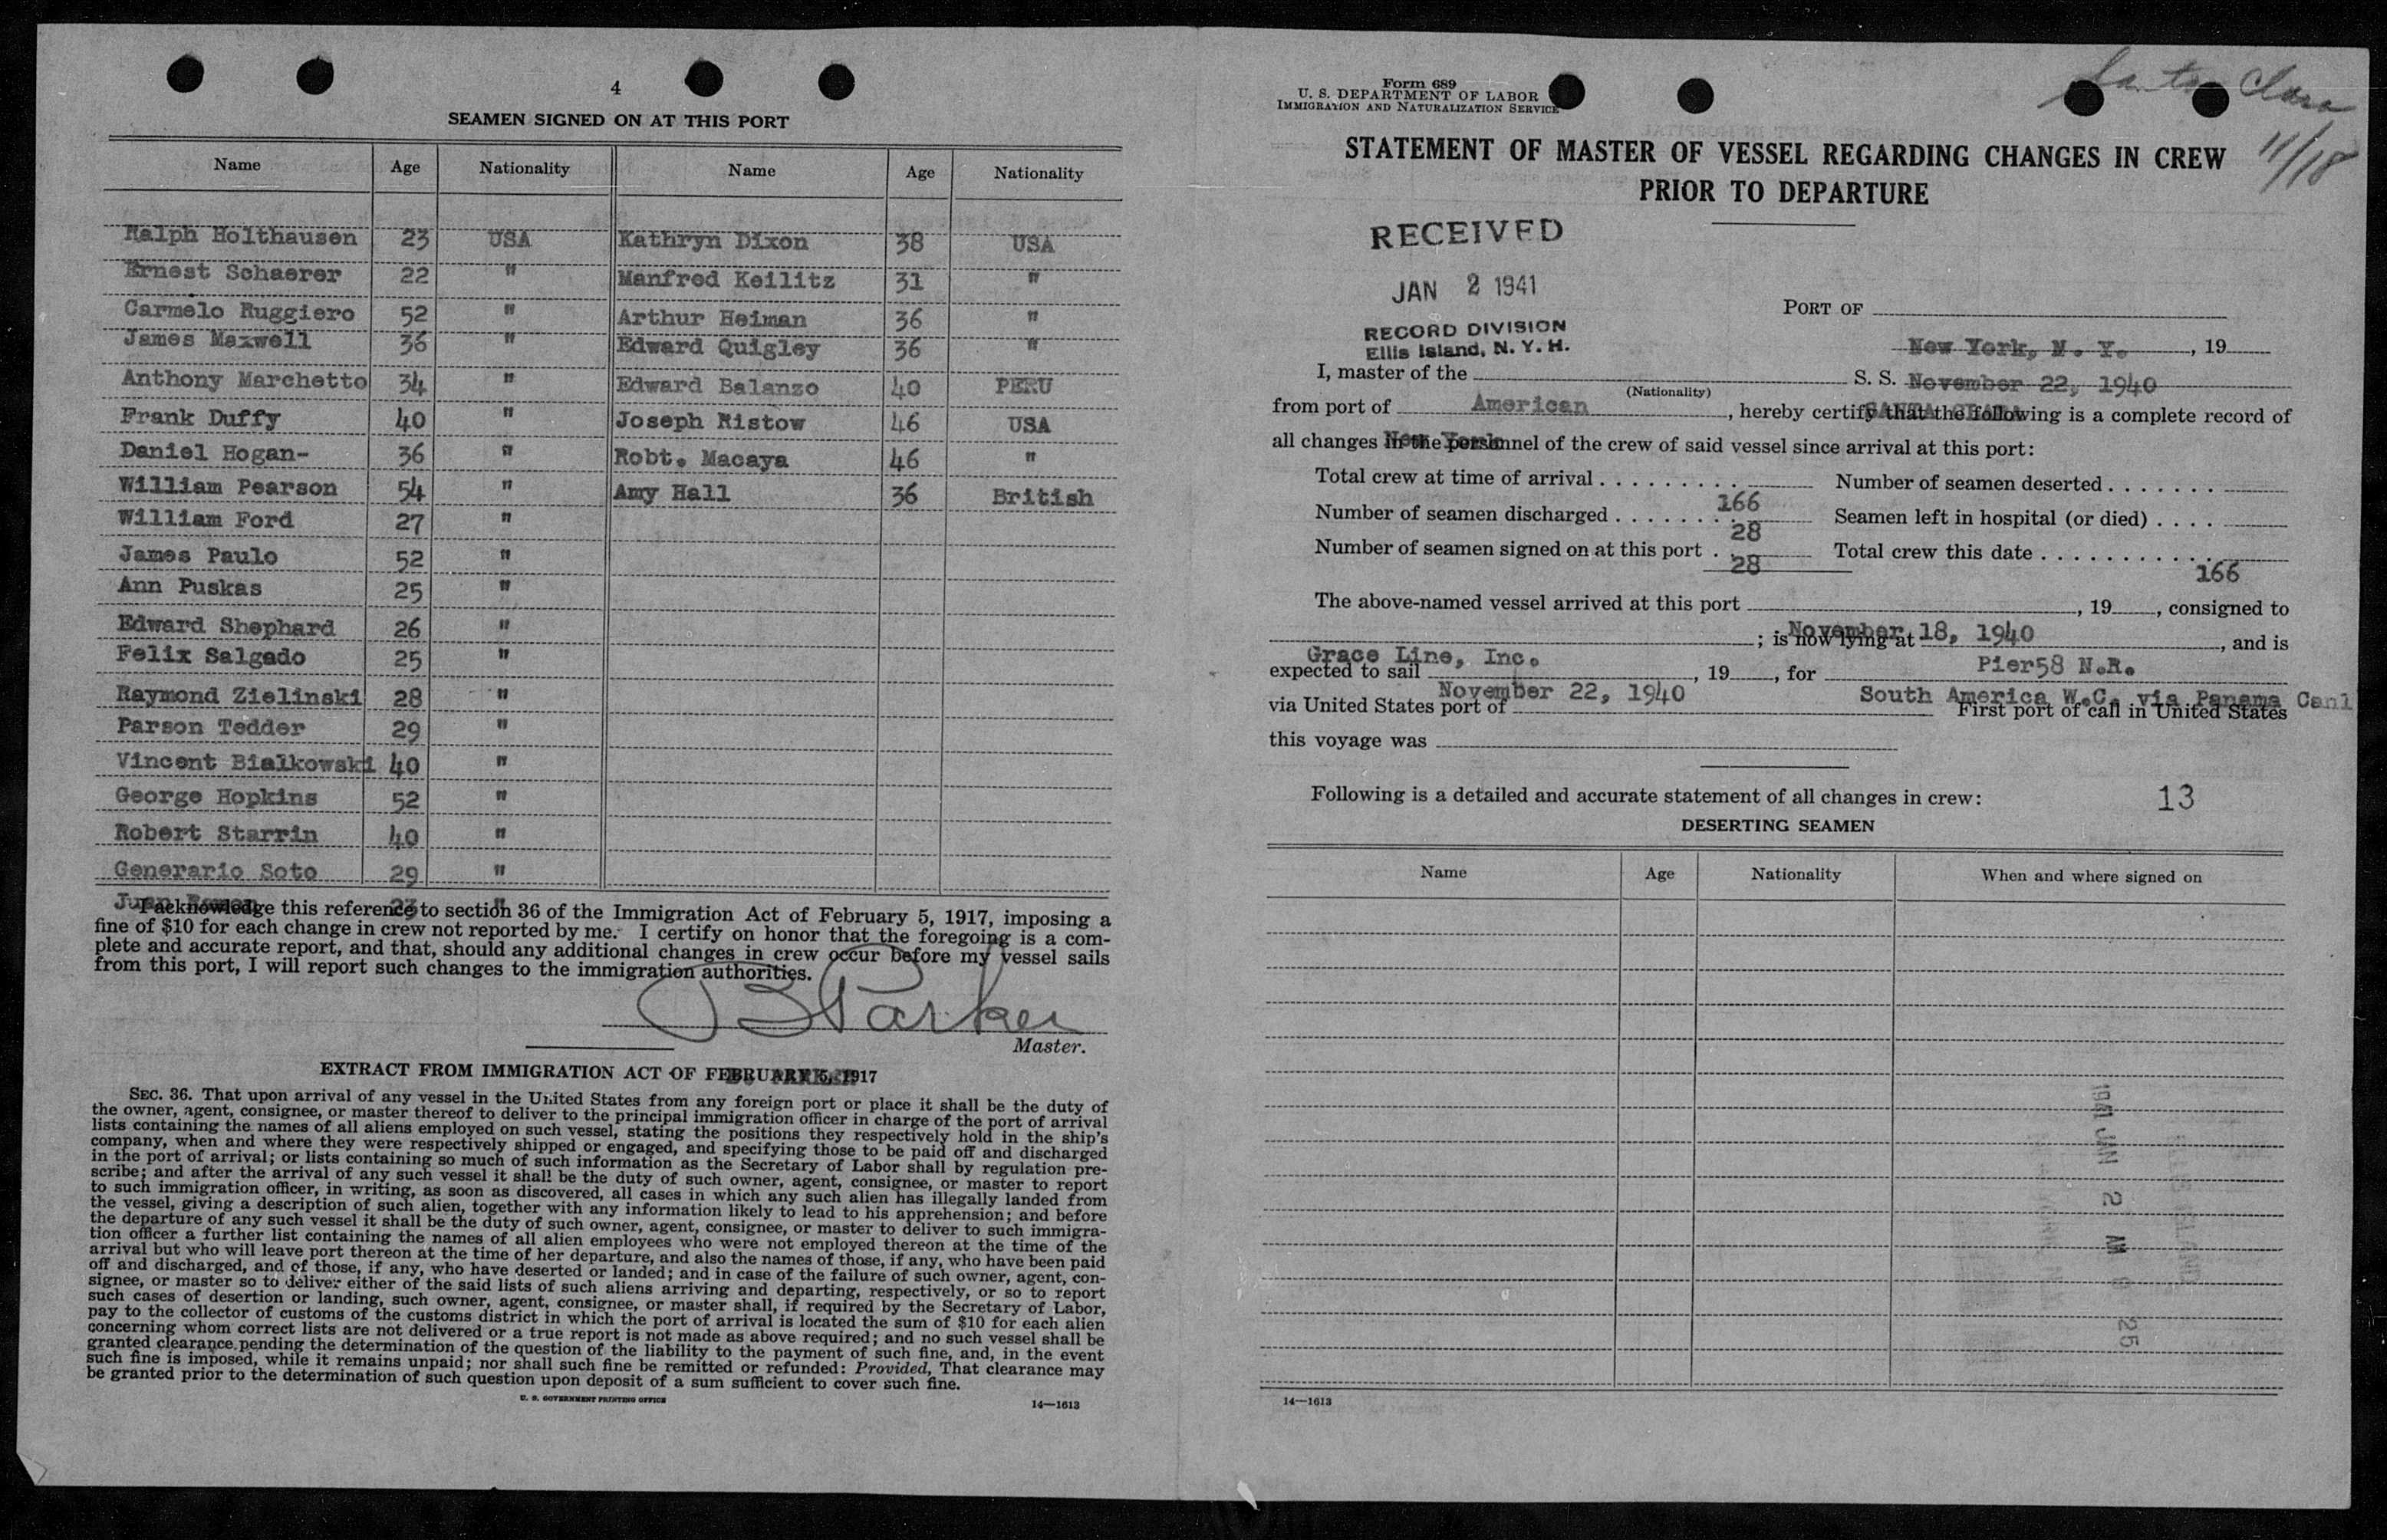 4
SEAMEN SIGNED ON AT THIS PORT
Name Age Nationality Name Age Nationality
Ralph Holthausen 23 USA Kathryn Dixon 38 USA
Ernest Schaerer 22 " Manfred Keilitz 31 "
Carmelo Ruggiero 52 " Arthur Heiman 36 "
James Maxwell 36 " Edward Quigley 36 "
Anthony Marchetto 34 " Edward Balanzo 40 PERU
Frank Duffy 40 " Joseph Ristow 46 USA
Daniel Hogan- 36 " Robt. Macaya 46 "
William Pearson 54 " Amy Hall 36 British
William Ford 27 "
James Paulo 52 "
Ann Puskas 25 "
Edward Shephard 26 "
Felix Salgado 25 "
Raymond Zielinski 28 "
Parson Tedder 29 "
Vincent Bialkowski 40 "
George Hopkins 52 "
Robert Starrin 40 "
Generario Soto 29 "
Juan 23 "
I acknowledge this reference to section 36 of the Immigration Act of February 5, 1917, imposing a
fine of $10 for each change in crew not reported by me. I certify on honor that the foregoing is a com-
plete and accurate report, and that, should any additional changes in crew occur before my vessel sails
from this port, I will report such changes to the immigration authorities.
Parker
Master.
EXTRACT FROM IMMIGRATION ACT OF FEBRUARY 5, 1917
SEC. 36. That upon arrival of any vessel in the United States from any foreign port or place it shall be the duty of
the owner, agent, consignee, or master thereof to deliver to the principal immigration officer in charge of the port of arrival
lists containing the names of all aliens employed on such vessel, stating the positions they respectively hold in the ship's
company, when and where they were respectively shipped or engaged, and specifying those to be paid off and discharged
in the port of arrival; or lists containing so much of such information as the Secretary of Labor shall by regulation pre-
scribe; and after the arrival of any such vessel it shall be the duty of such owner, agent, consignee, or master to report
to such immigration officer, in writing, as soon as discovered, all cases in which any such alien has illegally landed from
the vessel, giving a description of such alien, together with any information likely to lead to his apprehension; and before
the departure of any such vessel it shall be the duty of such owner, agent, consignee, or master to deliver to such immigra-
tion officer a further list containing the names of all alien employees who were not employed thereon at the time of the
arrival but who will leave port thereon at the time of her departure, and also the names of those, if any, who have been paid
off and discharged, and of those, if any, who have deserted or landed; and in case of the failure of such owner, agent, con-
signee, or master so to deliver either of the said lists of such aliens arriving and departing, respectively, or so to report
such cases of desertion or landing, such owner, agent, consignee, or master shall, if required by the Secretary of Labor,
pay to the collector of customs of the customs district in which the port of arrival is located the sum of $10 for each alien
concerning whom correct lists are not delivered or a true report is not made as above required; and no such vessel shall be
granted clearance pending the determination of the question of the liability to the payment of such fine, and, in the event
such fine is imposed, while it remains unpaid; nor shall such fine be remitted or refunded: Provided, That clearance may
be granted prior to the determination of such question upon deposit of a sum sufficient to cover such fine.
U. S. GOVERNMENT PRINTING OFFICE 14—1613
Form 689
U. S. DEPARTMENT OF LABOR
IMMIGRATION AND NATURALIZATION SERVICE
Santa Clara
11/18
STATEMENT OF MASTER OF VESSEL REGARDING CHANGES IN CREW
PRIOR TO DEPARTURE
RECEIVED
JAN 2 1941
RECORD DIVISION
Ellis Island, N. Y. H.
PORT OF
New York, N. Y. , 19
I, master of the S. S. November 22, 1940
(Nationality)
from port of American , hereby certify that the following is a complete record of
SANTA CLARA
all changes in the personnel of the crew of said vessel since arrival at this port:
New York
Total crew at time of arrival Number of seamen deserted
166
Number of seamen discharged Seamen left in hospital (or died)
28
Number of seamen signed on at this port Total crew this date
28 166
The above-named vessel arrived at this port , 19 , consigned to
November 18, 1940
; is now lying at , and is
Grace Line, Inc. Pier58 N.R.
expected to sail , 19 , for
November 22, 1940 South America W.C. via Panama Canl
via United States port of First port of call in United States
this voyage was
Following is a detailed and accurate statement of all changes in crew: 13
DESERTING SEAMEN
Name Age Nationality When and where signed on
1941 JAN 2 AM 9 25
14—1613